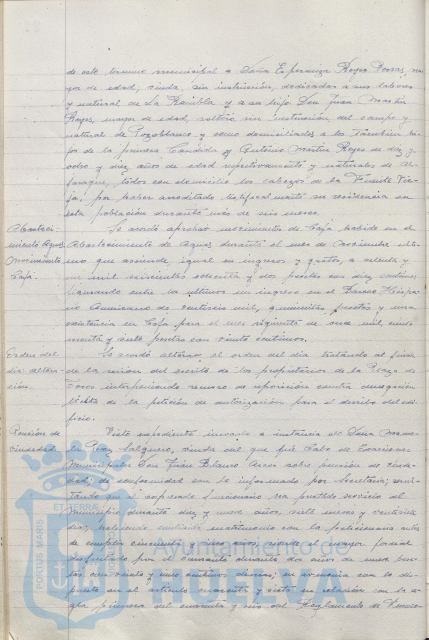 de este termino municipal a Doña Esperanza Reyes Porras, ma-
yor de edad, viuda, sin instrucción, dedicada a sus labores
y natural de La Rambla y a su hijo Don Juan Martín
Reyes, mayor de edad, soltero sin instrucción del campo y
natural de Pozoblanco y como domiciliados a los también hi-
jos de la primera Candida y Antonio Martín Reyes de diez y
ocho y diez años de edad respectivamente y naturales de
todos con domicilio los cabezos de la Fuente Vie-
ja, por haber acreditado su residencia en
esta población durante más de seis meses.
Abasteci-
miento Aguas
Movimiento
Caja.
Se acordó aprobar movimiento de Caja habido en el
Abastecimiento de Aguas durante el mes de Noviembre últi-
mo que asciende, igual en ingresos y gastos, a ochenta y
un mil seiscientas sesenta y dos pesetas con diez centimos,
figurando entre los últimos un ingreso en el Banco Hispa-
no Americano de veintiseis mil, quinientas pesetas y una
existencia en Caja para el mes siguiente de once mil, ciento
y siete pesetas con veinte centimos.
Orden del
dia altera-
ción.
Se acordó alterar el orden del día tratando al final
de la reunión del escrito de los propietarios de la Plaza de
Toros interponiendo recurso de reposición contra denegación
de la petición de autorización para el derribo del edi-
ficio.
Pensión de
viudedad.
Visto expediente incoado a instancia de Doña Manue-
la Salguero, viuda del que fué Cabo de
Municipales Don Juan Blanco sobre pensión de viude-
dad; de conformidad con lo informado por Secretaría; resul-
tando que el expresado funcionario ha prestado servicio al
municipio durante diez y nueve años, siete meses y veintiun
dias, habiendo contraido matrimonio con la peticionaria antes
de cumplir cincuenta y cinco años, siendo el mayor jornal
disfrutado por el causante durante dos años de nueve pese-
tas con veinte y uno centimos diarios; en armonia con lo dis-
puesto en el articulo cuarenta y siete en relación con la
primera del cuarenta y seis del Reglamento de Funcio-
PORTUS MARIS
ET TERRAE
Ayuntamiento de
HUELVA